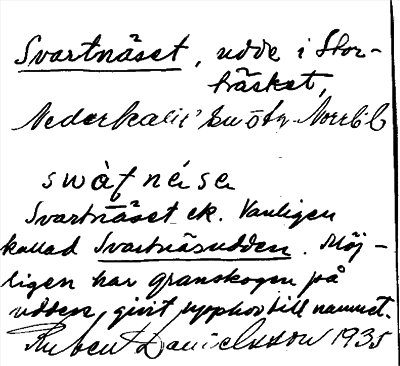 Svartnäset, udde i Stor-
träsket,
Nederkalix sn ö. Norrb.
swàt nése
Svartnäset ek. Vanligen
kallad Svartnäsudden. Möj-
ligen har granskogen på
udden, givit upphov till namnet.
Ruben Danielsson 1935